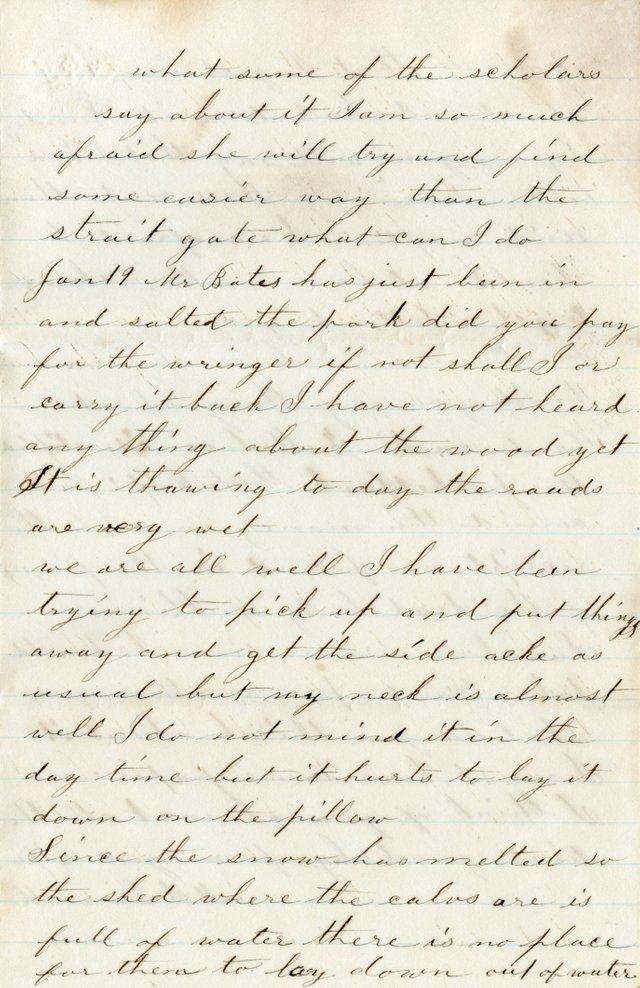 what some of the scholars
say about it I am so much
afraid she will try and find
some easier way than the
strait gate what can I do
Jan 19 Mr Bates has just been in
and salted the pork did you pay
for the wringer if not shall I or
carry it back I have not heard
any thing about the wood yet
It is thawing to day the roads
are very wet
we are all well I have been
trying to pick up and put things
away and get the side ache as
usual but my neck is almost
well I do not mind it in the
day time but it hurts to lay it
down on the pillow
Since the snow has melted so
the shed where the calvs are is
full of water there is no place
for them to lay down out of water